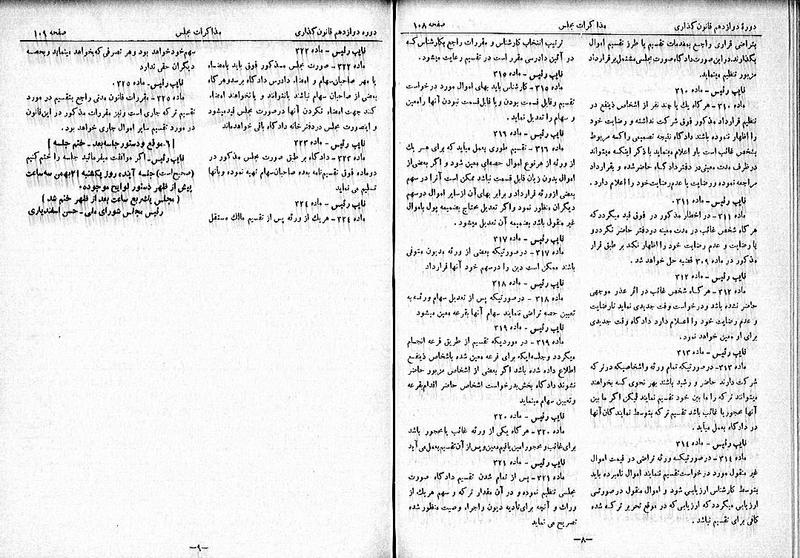 دوره دوازدهم قانون گذاری
مذاکرات مجلس
صفحه ۱۰۸
بتراضی قراری راجع بمقدمات تقسیم یا طرز تقسیم اموال
بگذارند در این صورت دادگاه صورت مجلسی مشتمل بر قرارداد
مزبور تنظیم مینماید.
نایب رئیس - ماده ۳۱۰
ماده ۳۱۰ - هرگاه یک یا چند نفر از اشخاص ذینفع در
تنظیم قرارداد مذکور فوق شرکت نداشته و رضایت خود
را اظهار نموده باشند دادگاه نتیجه تصمیمی را که مربوط
بشخص غائب است باو اعلام مینماید با ذکر اینکه میتواند
در ظرف مدت معینی در دفتر دادگاه حاضر شده و بقرارداد
مراجعه نموده و رضایت یا عدم رضایت خود را اعلام دارد.
نایب رئیس - ماده ۳۱۱
ماده ۳۱۱ - در اخطار مذکور در فوق قید میگردد که
هرگاه شخص غائب در مدت معینه در دفتر حاضر نگردد و
یا رضایت و عدم رضایت خود را اظهار نکند بر طبق قرار
مذکور در ماده ۳۰۹ قضیه حل خواهد شد.
نایب رئیس - ماده ۳۱۲
ماده ۳۱۲ - هرگاه شخص غائب در اثر عذر موجهی
حاضر نشده باشد و درخواست وقت جدیدی نماید تا رضایت
و عدم رضایت خود را اعلام دارد دادگاه وقت جدیدی
برای او معین خواهد نمود.
نایب رئیس - ماده ۳۱۳
ماده ۳۱۳ - در صورتیکه تمام ورثه و اشخاصیکه در ترکه
شرکت دارند حاضر و رشید باشند بهر نحوی که بخواهند
میتوانند ترکه را ما بین خود تقسیم نمایند لیکن اگر ما بین
آنها محجور یا غائب باشد تقسیم ترکه بتوسط نمایندگان آنها
در دادگاه بعمل میاید.
نایب رئیس - ماده ۳۱۴
ماده ۳۱۴ - در صورتیکه ورثه تراضی در قیمت اموال
غیر منقول مورد درخواست تقسیم ننمایند اموال نامبرده باید
بتوسط کارشناس ارزیابی شود و اموال منقول در صورتی
ارزیابی میگردد که ارزیابی که در موقع تحریر ترکه شده
کافی برای تقسیم نباشد.
ترتیب انتخاب کارشناس و مقررات راجع بکارشناس که
در آئین دادرسی مقرر است در تقسیم رعایت میشود.
نایب رئیس - ماده ۳۱۵
ماده ۳۱۵ - کارشناس باید بهای اموال مورد درخواست
تقسیم و قابل قسمت بودن و یا قابل قسمت نبودن آنها را معین
و سهام را تعدیل نماید.
نایب رئیس - ماده ۳۱۶
ماده ۳۱۶ - تقسیم طوری بعمل میاید که برای هر یک
از ورثه از هر نوع اموال حصه‌ای معین شود و اگر بعضی از
اموال بدون زیان قابل قسمت نباشد ممکن است آنرا در سهم
بعضی از ورثه قرارداد و برابر بهای آن از سایر اموال در سهم
دیگران منظور نمود و اگر تعدیل محتاج بضمیمه پول باموال
غیر منقول باشد بضمیمه آن تعدیل میشود.
نایب رئیس - ماده ۳۱۷
ماده ۳۱۷ - در صورتیکه بعضی از ورثه مدیون متوفی
باشند ممکن است دین را در سهم خود آنها قرارداد
نایب رئیس - ماده ۳۱۸
ماده ۳۱۸ - در صورتیکه پس از تعدیل سهام ورثه به
تعیین حصه تراضی ننمایند سهام آنها بقرعه معین میشود
نایب رئیس - ماده ۳۱۹
ماده ۳۱۹ - در موردیکه تقسیم از طریق قرعه انجام
میگردد و جلسه‌ایکه برای قرعه معین شده باشخاص ذینفع
اطلاع داده شده باشد اگر بعضی از اشخاص مزبور حاضر
نشوند دادگاه بخش بدرخواست اشخاص حاضر اقدام بقرعه
و تعیین سهام مینماید
نایب رئیس - ماده ۳۲۰
ماده ۳۲۰ - هرگاه یکی از ورثه غائب یا محجور باشد
برای غائب و محجور امین یا قیم معین و پس از آن تقسیم بعمل می‌آید
نایب رئیس - ماده ۳۲۱
ماده ۳۲۱ - پس از تمام شدن تقسیم دادگاه صورت
مجلسی تنظیم نموده و در آن مقدار ترکه و سهم هر یک از
وراث و آنچه برای تأدیه دیون و اجراء وصیت منظور شده
تصریح می نماید
-۸-
دوره دوازدهم قانون گذاری
مذاکرات مجلس
صفحه ۱۰۹
نایب رئیس - ماده ۳۲۲
ماده ۳۲۲ - صورت مجلس مذکور فوق باید بامضاء
یا مهر صاحبان سهام و امضاء دادرس دادگاه برسد و هرگاه
بعضی از صاحبان سهام نباشند یا نتوانند و یا نخواهند امضاء
کنند جهت امضاء نکردن آنها در صورت مجلس قید میشود
و این صورت مجلس در دفتر خانه دادگاه باقی خواهد ماند
نایب رئیس - ماده ۳۲۳
ماده ۳۲۳ - دادگاه بر طبق صورت مجلس مذکور در
ماده فوق تقسیم نامه بعده صاحبان سهام تهیه نموده و بآنها
تسلیم می نماید
نایب رئیس - ماده ۳۲۴
ماده ۳۲۴ - هر یک از ورثه پس از تقسیم مالک مستقل
سهم خود خواهد بود و هر تصرفی که بخواهد مینماید و بحصه
دیگران حقی ندارد
نایب رئیس - ماده ۳۲۵
ماده ۳۲۵ - مقررات قانون مدنی راجع بتقسیم در مورد
تقسیم ترکه جاری است و نیز مقررات مذکور در این قانون
در مورد تقسیم سایر اموال جاری خواهد بود.
[ ۶ - موقع و دستور جلسه بعد - ختم جلسه ]
نایب رئیس - اگر موافقت میفرمائید جلسه را ختم کنیم
(صحیح است) جلسه آینده روز یکشنبه ۲ بهمن سه ساعت
پیش از ظهر دستور لوایح موجوده.
(مجلس یک ربع ساعت بعد از ظهر ختم شد)
رئیس مجلس شورای ملی - حسن اسفندیاری
-۹-